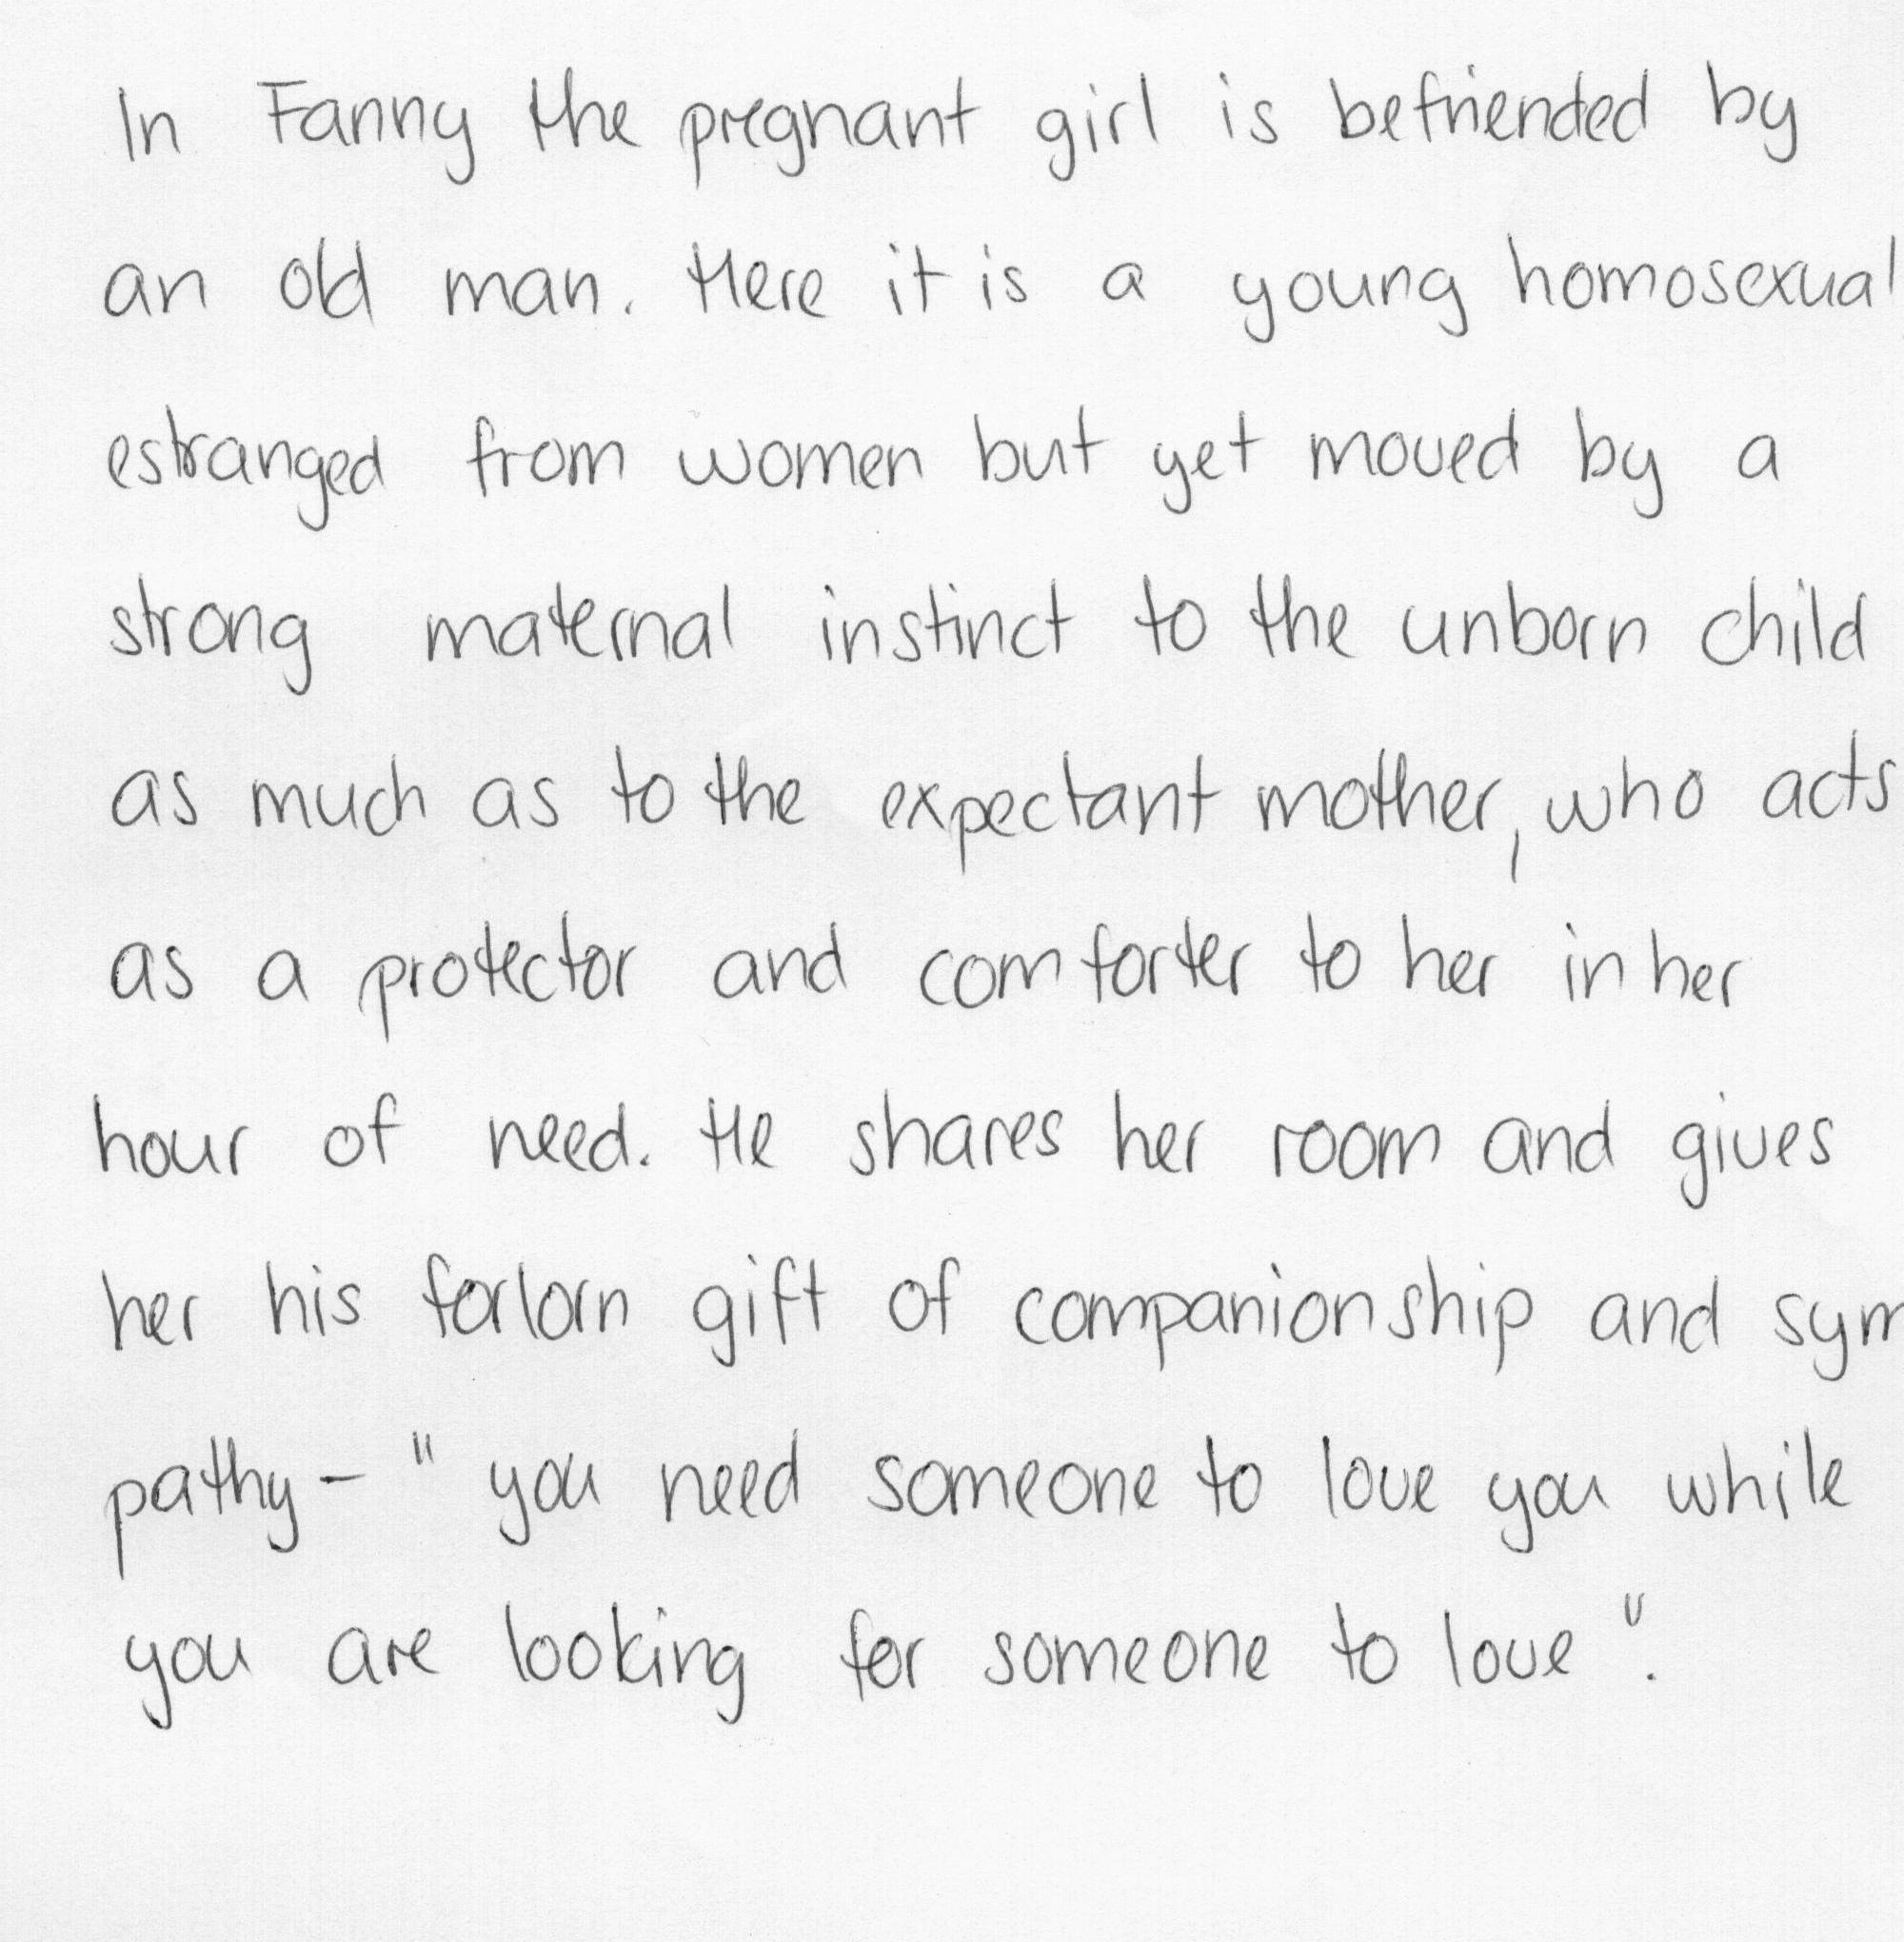 In Fanny the pregnant girl is befriended by
an old man. Here it is a young homosexual,
estranged from women but yet moved by a
strong maternal instinct to the unborn child
as much as to the expectant mother, who acts
as a protector and comforter to her in her
hour of need. He shares her room and gives
her his forlorn gift of companionship and sym
pathy - "you need someone to love you while
you are looking for someone to love".